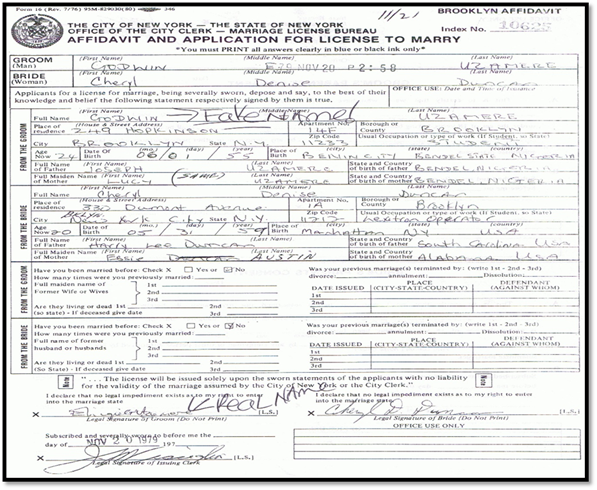 Form 16 (Rev. 7/76) 95M-829030(80) 346
11/21
BROOKLYN AFFIDAVIT
THE CITY OF NEW YORK — THE STATE OF NEW YORK
OFFICE OF THE CITY CLERK - MARRIAGE LICENSE BUREAU
Index No.
AFFIDAVIT AND APPLICATION FOR LICENSE TO MARRY
*You must PRINT all answers clearly in blue or black ink only*
GROOM (Man) (First Name) GODWIN (Middle Name) E 79 NOV 20 P 2:58 (Last Name) UZAMERE
BRIDE (Woman) (First Name) Cheryl (Middle Name) Denise (Last Name) Duncan
Applicants for a license for marriage, being severally sworn, depose and say, to the best of their
knowledge and belief the following statement respectively signed by them is true,
OFFICE USE: Date and Time of Issuance
FROM THE GROOM
Full Name (First Name) GODWIN → Fake Name! (Last Name) UZAMERE
Place of residence (House & Street Address) 249 HOPKINSON Apartment No. 14F Borough or County BROOKLYN
City BROOKLYN State N.Y. Zip Code 11233 Usual Occupation or type of work (If Student, in State) STUDENT
Age Now 24 Date of Birth (month) 06 (day) 01 (year) 55 Place of Birth (city) BENIN CITY (state) BENDEL STATE (country) NIGERIA
Full Name of Father (First Name) JOSEPH (Last Name) UZAMERE State and Country of birth of father BENDEL, NIGER
Full Maiden Name of Mother (First Name) LUCY (SAME) (Last Name) UZAMERE State and Country of birth of mother BENDEL, NIGER
FROM THE BRIDE
Full Name (First Name) Cheryl (Middle Name) Denise (Last Name) Duncan
Place of residence (House & Street Address) 330 Dumont Avenue Apartment No. 1A Borough or County Brooklyn
City Bklyn. New York City State N.Y. Zip Code 11212 Usual Occupation or type of work (If Student, in State) Operator
Age Now 20 Date of Birth (month) 05 (day) 31 (year) 59 Place of Birth (city) Manhattan (state) NY (country) USA
Full Name of Father (First Name) Harry Lee Duncan (Last Name) State and Country of birth of father South Carolina USA
Full Maiden Name of Mother (First Name) Essie AUSTIN (Last Name) State and Country of birth of mother Alabama USA
FROM THE GROOM
Have you been married before: Check X Yes or No
How many times were you previously married:
Full maiden name of Former Wife or Wives 1st 2nd 3rd
Are they living or dead 1st 2nd
(so State) - If deceased give date 3rd
Was your previous marriage(s) terminated by: (write 1st - 2nd - 3rd)
divorce: annulment: Dissolution:
DATE ISSUED PLACE (CITY-STATE-COUNTRY) DEFENDANT (AGAINST WHOM)
1st
2nd
3rd
FROM THE BRIDE
Have you been married before: Check X Yes or No
How many times were you previously married:
Full name of former husband or husbands 1st 2nd 3rd
Are they living or dead 1st 2nd
(So State) - If deceased give date 3rd
Was your previous marriage(s) terminated by: (write 1st - 2nd - 3rd)
divorce: annulment: Dissolution:
DATE ISSUED PLACE (CITY-STATE-COUNTRY) DEFENDANT (AGAINST WHOM)
1st
2nd
3rd
Note "... The license will be issued solely upon the sworn statements of the applicants with no liability
for the validity of the marriage assumed by the City of New York or the City Clerk."
I declare that no legal impediment exists as to my right to enter
into the marriage state
← Real NAME
X [L.S.]
Legal Signature of Groom (Do Not Print)
I declare that no legal impediment exists as to my right to enter
into the marriage state
X Cheryl D. Duncan [L.S.]
Legal Signature of Bride (Do Not Print)
Subscribed and severally sworn to before me this
day of NOV 20 1979
X [L.S.]
Legal Signature of Issuing Clerk
OFFICE USE ONLY